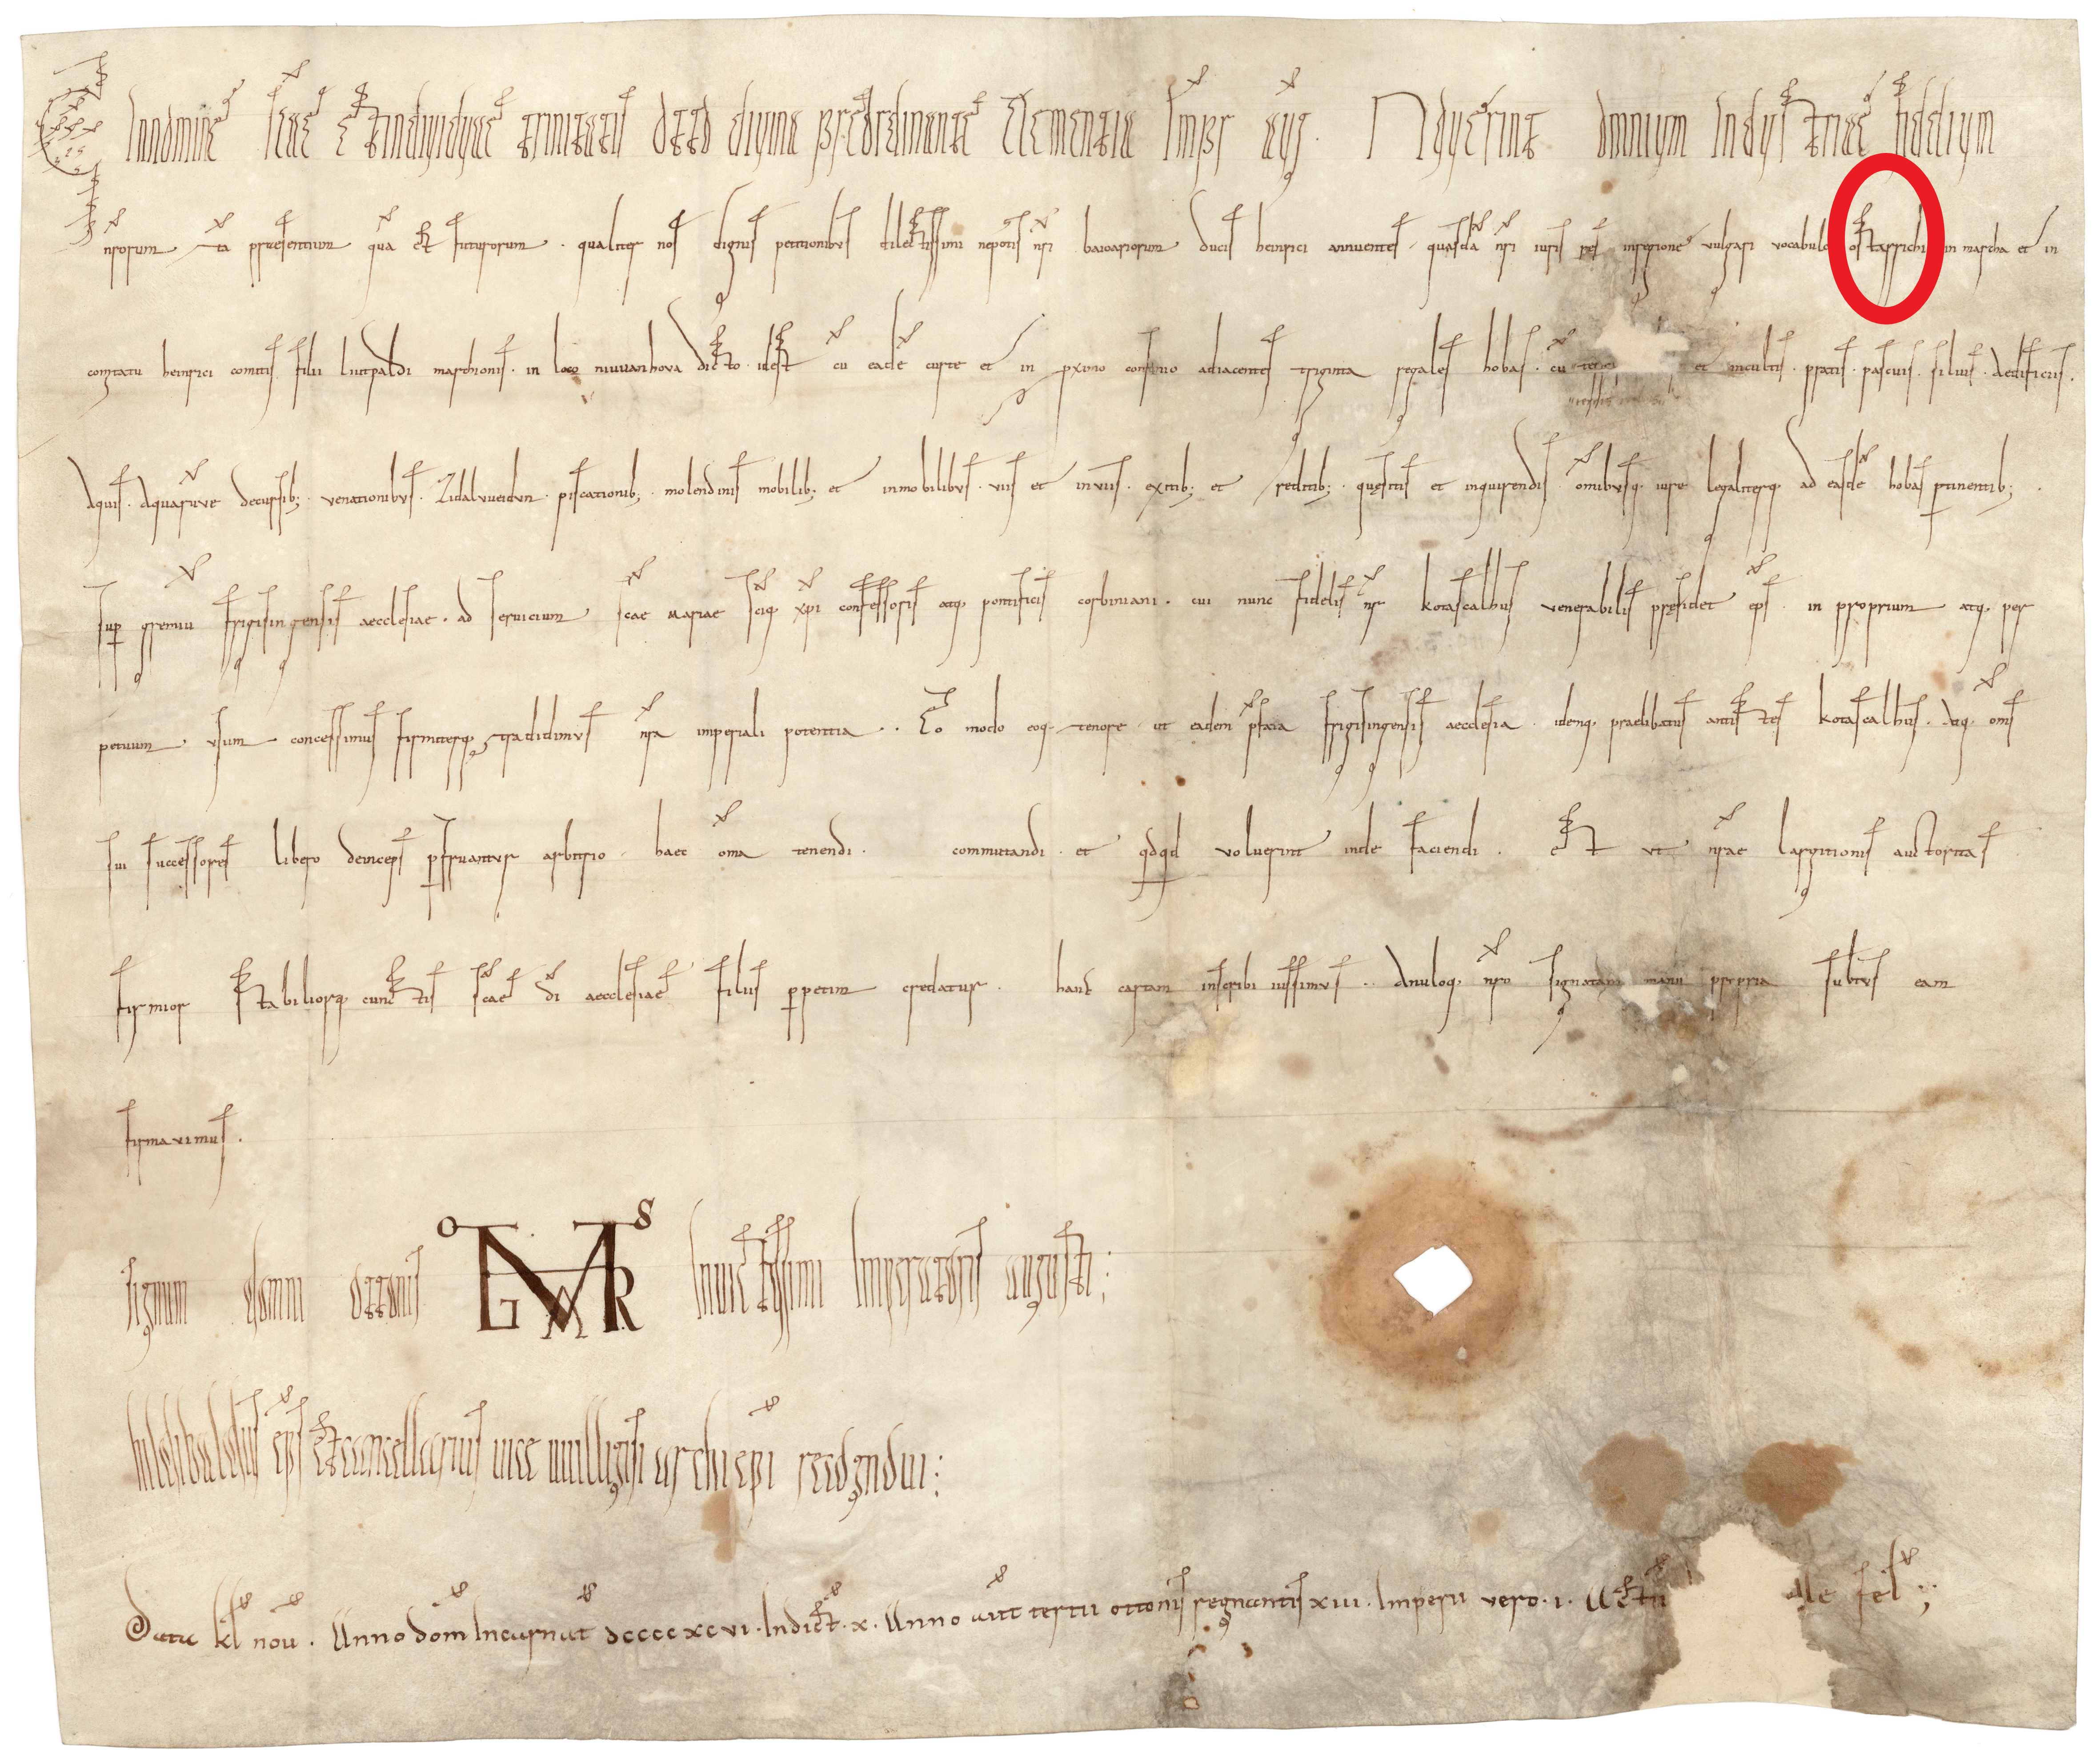 In nomine sce et individue trinitatis otto divina preordinante clementia Imper aug. Noverint omnium industriae fidelium
nrorum ta praesentium qua et futurorum. qualiter nos dignis petitionibus dilectissimi nepotis nri baioariorum ducis heinrici annuentes. quasda nri iuris res in regione vulgari vocabulo ostarrichi in marcha et in
comitatu heinrici comitis. filii liutpaldi marchionis. in loco niuuanhova dicto. id est cu eade curte et in pximo confinio adiacentes triginta regales hobas. cu et incultis. pratis. pascuis. silvis. aedificiis.
aquis. aquaruve decursib; venationibus. Zidalvueidun. piscationib; molendinis mobilib; et inmobilibus. viis et inviis. exitib; et reditib; quesitis et inquirendis omibusq. iure legaliterq. ad easde hobas ptinentib;.
sup gremiu frigisingensis aecclesiae. ad servicium scae mariae sciq. xpi confessoris atq. pontificis corbiniani. cui nunc fidelis nr kotascalhus venerabilis presidet eps. in proprium atq. per
petuum usum concessimus firmiterq. tradidimus nra imperiali potentia. Eo modo eoq. tenore ut eadem frigisingensis aecclesia. idemq. praelibatus antistes kotascalhus. atq. oms
sui successores libero deinceps pfruantur arbitrio. haec oma tenendi. commutandi. et qdqd voluerint inde faciendi. Et ut nrae largitionis auctoritas
firmior stabiliorq. cunctis scae di aecclesiae filiis ppetim credatur. hanc cartam inscribi iussimus. anuloq. nro signatam manu propria subtus eam
firmavimus.
signum domni ottonis invictissimi Imperatoris augusti;
hildibaldus eps et cancellarius vice uuilligisi archiepi recognovi;
Data kl nou. Anno dom Incarnat dcccc xc vi. Indict. x. Anno aut tertii ottonis regnantis xiii. Imperii vero. i. Actu ale fel;